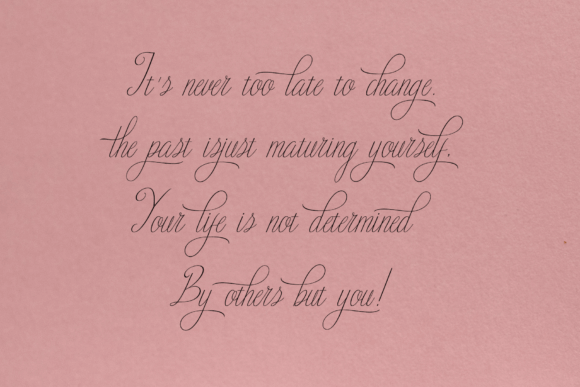 It's never too late to change.
the past isjust maturing yourself.
Your life is not determined
By others but you!